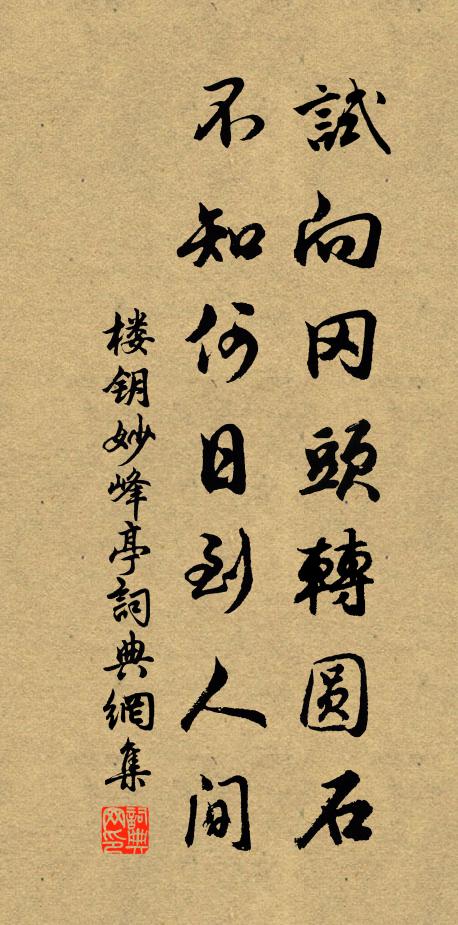 試向冈頭轉圆石
不知何日到人间
楼钥妙峰亭詞典網集
詞典网印